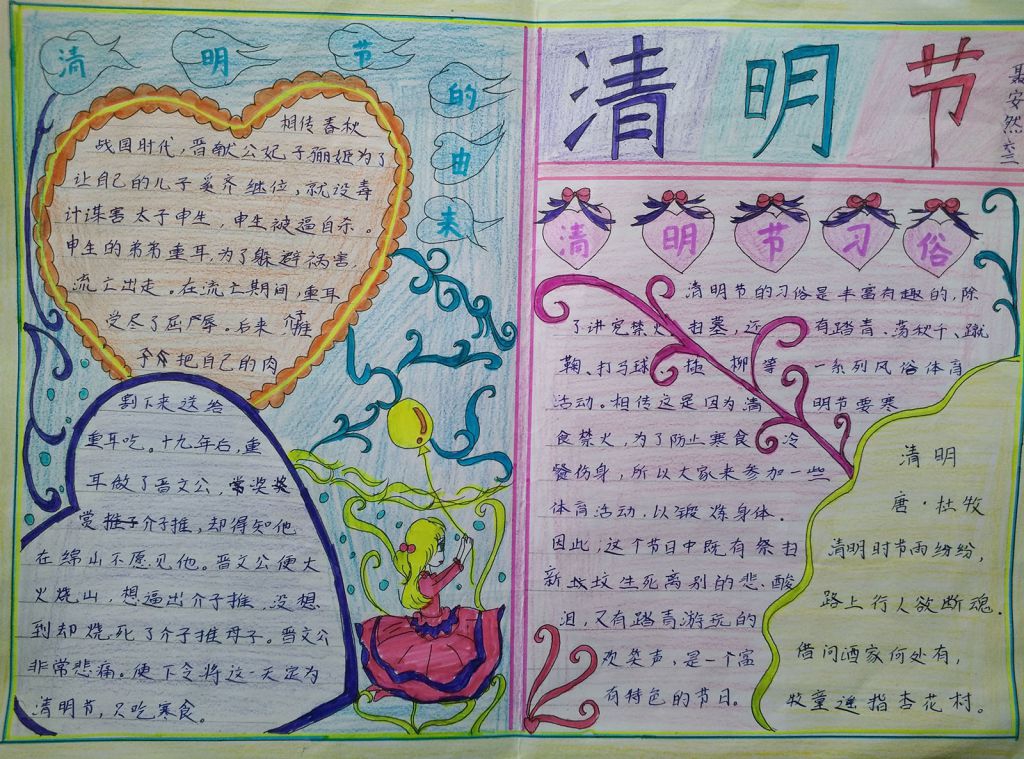 清明节的由来
相传春秋
战国时代,晋献公妃子骊姬为了
让自己的儿子奚齐继位,就设毒
计谋害太子申生,申生被逼自杀。
申生的弟弟重耳,为了躲避祸害,
流亡出走。在流亡期间,重耳
受尽了屈辱。后来介推
子把自己的肉
割下来送给
重耳吃。十九年后,重
耳做了晋文公,常奖
赏推子介子推,却得知他
在绵山不愿见他。晋文公便大
火烧山,想逼出介子推,没想
到却烧死了介子推母子。晋文公
非常悲痛。便下令将这一天定为
清明节,只吃寒食。
清明节
聂安然六三
清明节习俗
清明节的习俗是丰富有趣的,除
了讲究禁火、扫墓,还有踏青、荡秋千、蹴
鞠、打马球、插柳等一系列风俗体育
活动。相传这是因为清明节要寒
食禁火,为了防止寒食冷
餐伤身,所以大家来参加一些
体育活动,以锻炼身体.
因此,这个节日中既有祭扫
新坟生死离别的悲、酸
泪,又有踏青游玩的
欢笑声,是一个富
有特色的节日。
清明
唐·杜牧
清明时节雨纷纷,
路上行人欲断魂.
借问酒家何处有,
牧童遥指杏花村.